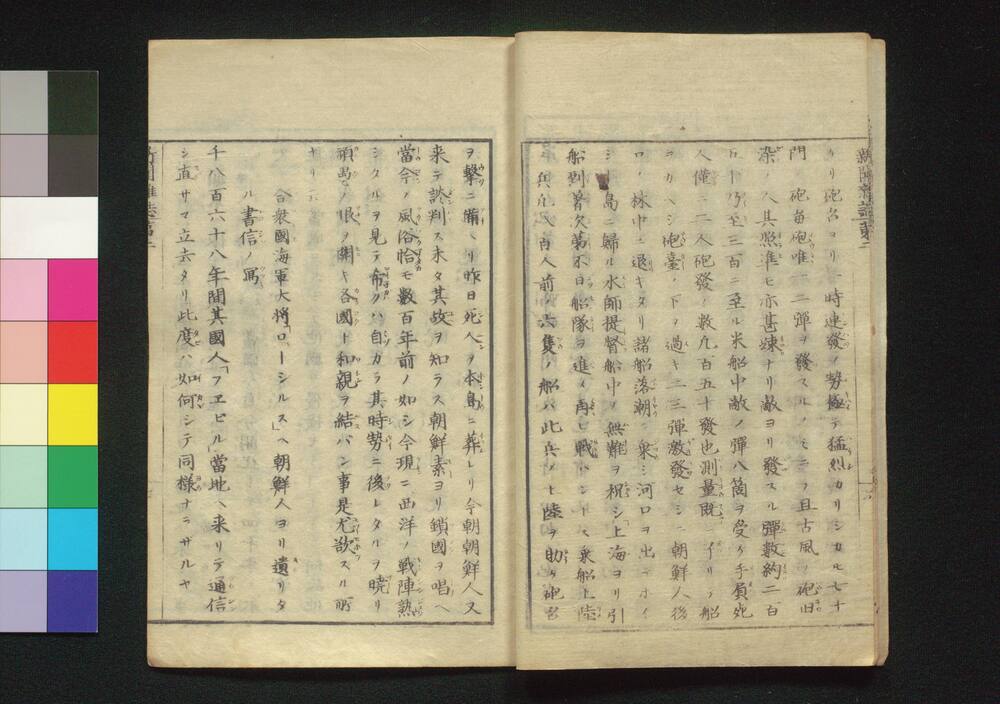 新聞雑誌第二
タリ砲台ヨリ一時連發ノ勢極テ猛烈カリシカル七十
門ノ砲毎砲唯一二彈ヲ發スルノミニテ且古風ノ砲旧
染ノ人其照準モ亦甚竦ナリ敵ヨリ發スル彈数約二百
五十乃至三百ニ至ル米船中敵ノ彈八箇ヲ受ケ手負死
人僅ニ二人砲發ノ數凡百五十發也測量既ニイリ船
ヲカヘシ砲臺ノ下ヲ過キ二三彈激發セシニ朝鮮人後
ロノ林中ニ退キタリ諸船落潮ニ乗シ河口ヲ出テホイ
シー島ニ歸ル水師提督船中ノ無難ヲ祝シ上海ヨリ引
船到着次第不日船隊ヲ進メ再ヒ戰ハントス乗船上陸
ノ兵凡八百人前ノ六隻ノ船ハ此兵ノ上陸ヲ助ケ砲台
ヲ撃ニ備ヘリ昨日死人ヲ本島ニ葬レリ今朝朝鮮人又
来テ談判ス未タ其故ヲ知ラス朝鮮素ヨリ鎖國ヲ唱ヘ
當今ノ風俗恰モ數百年前ノ如シ今現ニ西洋ノ戰陣熟
シタルヲ見テ希クハ自カラ其時勢ニ後レタルヲ曉リ
頑愚ノ眼ヲ開キ各國ト和親ヲ結バン事是尤欲スル所
ナリ
合衆國海軍大将「ロージルス」ヘ朝鮮人ヨリ遺リタ
ル書信ノ寫
千八百六十八年間其國人「フエビル」當地ヘ来リテ通信
シ直サマ立去タリ此度ハ如何シテ同様ナラザルヤ
新聞雑誌第二